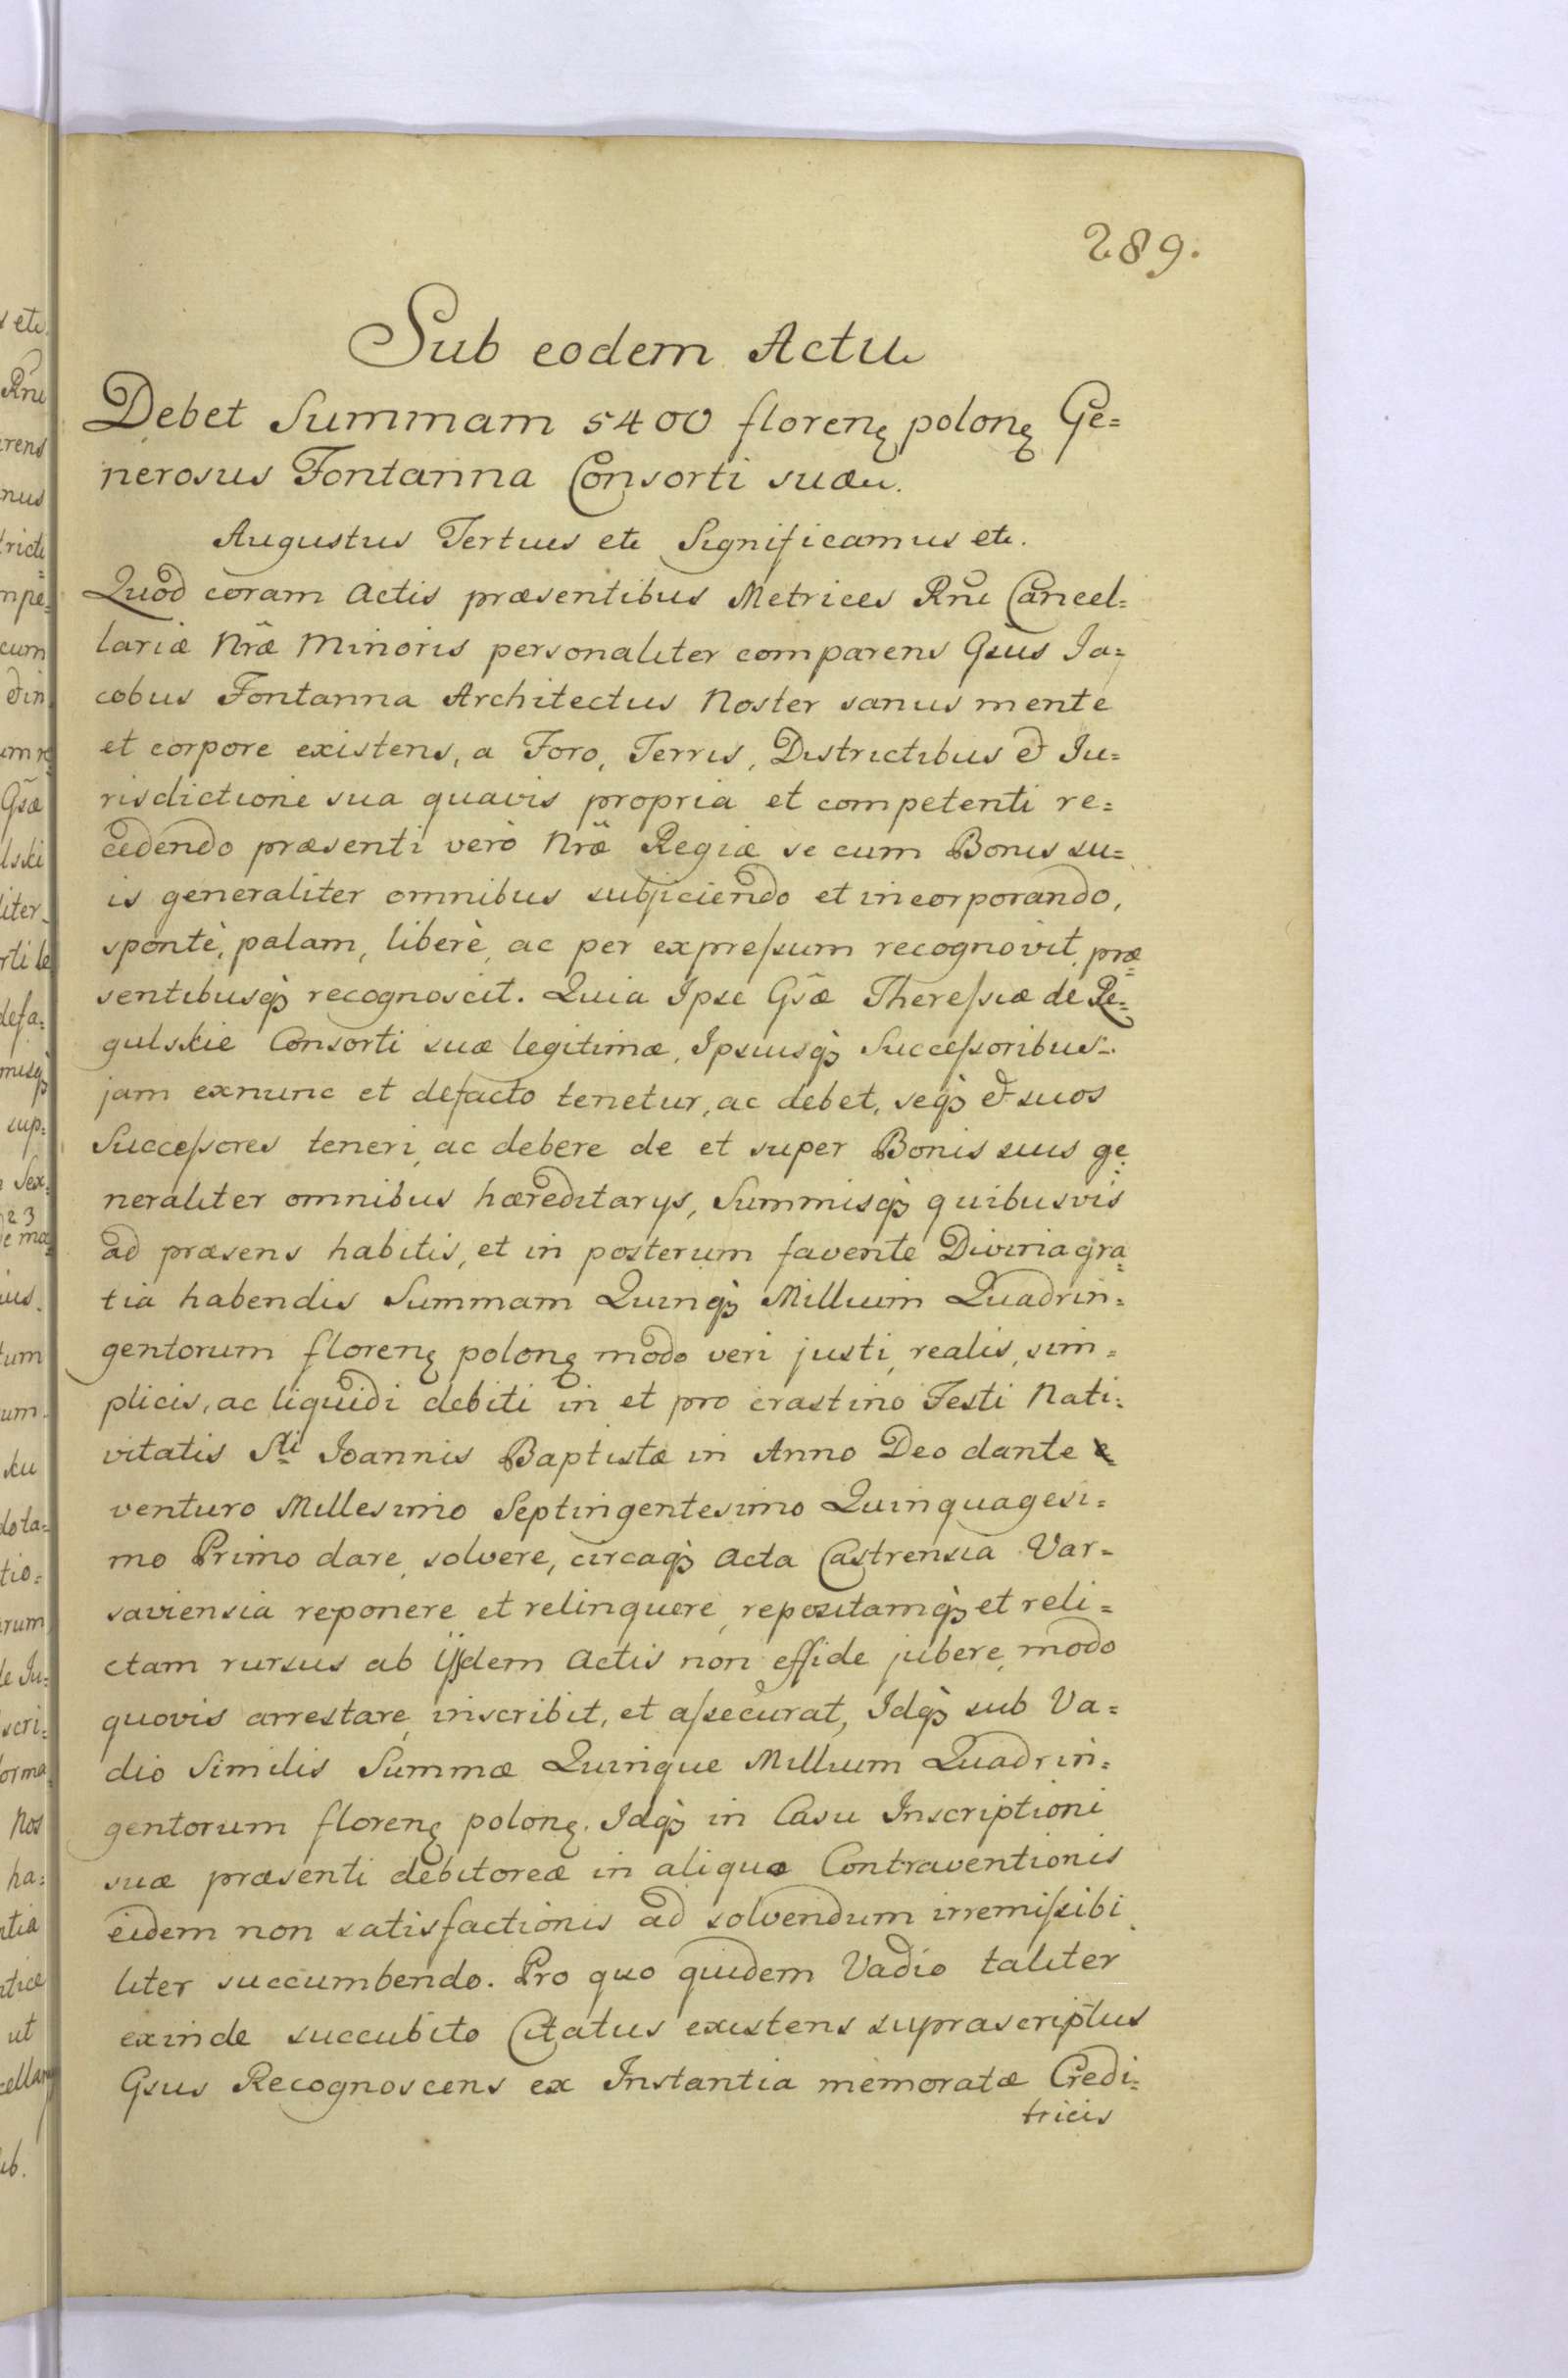 289.
Sub eodem Actu
Debet Summam 5400 florenꝫ polonꝫ Ge=
nerosus Fontanna Consorti suæ.
Augustus Tertius etc Significamus etc.
Quod coram Actis præsentibus Metrices Rñi Cancel=
lariæ Nr̃æ Minoris personaliter comparens Gsus Ja=
cobus Fontanna Architectus Noster sanus mente
et corpore existens, a Foro, Terris, Districtibus et Ju=
risdictione sua quavis propria et competenti re=
cedendo præsenti verò Nr̃æ Regiæ se cum Bonis su=
is generaliter omnibus subjiciendo et incorporando,
spontè, palam, liberè, ac per expreſsum recognovit, præ=
sentibusqꝫ recognoscit. Quia Ipse Gs̃æ Thereſsiæ de Re=
gulskie Consorti suæ legitimæ, Ipsiusqꝫ Succeſsoribus
jam exnunc et defacto tenetur, ac debet, seqꝫ et suos
Succeſsores teneri, ac debere de et super Bonis suis ge=
neraliter omnibus hæreditarys, Summisqꝫ quibusvis
ad præsens habitis, et in posterum favente Divina gra=
tia habendis Summam Quinqꝫ Millium Quadrin=
gentorum florenꝫ polonꝫ modo veri justi, realis, sim=
plicis, ac liquidi debiti in et pro crastino Festi Nati=
vitatis Sti Joannis Baptistæ in Anno Deo dante
venturo Millesimo Septingentesimo Quinquagesi=
mo Primo dare, solvere, circaqꝫ Acta Castrensia Var=
saviensia reponere et relinquere, repositamqꝫ et reli=
ctam rursus ab ijsdem Actis non effide jubere, modo
quovis arrestare, inscribit, et aſsecurat, Idqꝫ sub Va=
dio Similis Summæ Quinque Millium Quadrin=
gentorum florenꝫ polonꝫ. Idqꝫ in Casu Inscriptioni
suæ præsenti debitoreæ in aliquo Contraventionis
eidem non satisfactionis ad solvendum irremiſsibi
liter succumbendo. Pro quo quidem Vadio taliter
exinde succubito Citatus existens suprascriptus
Gsus Recognoscens ex Instantia memoratæ Credi=
tricis